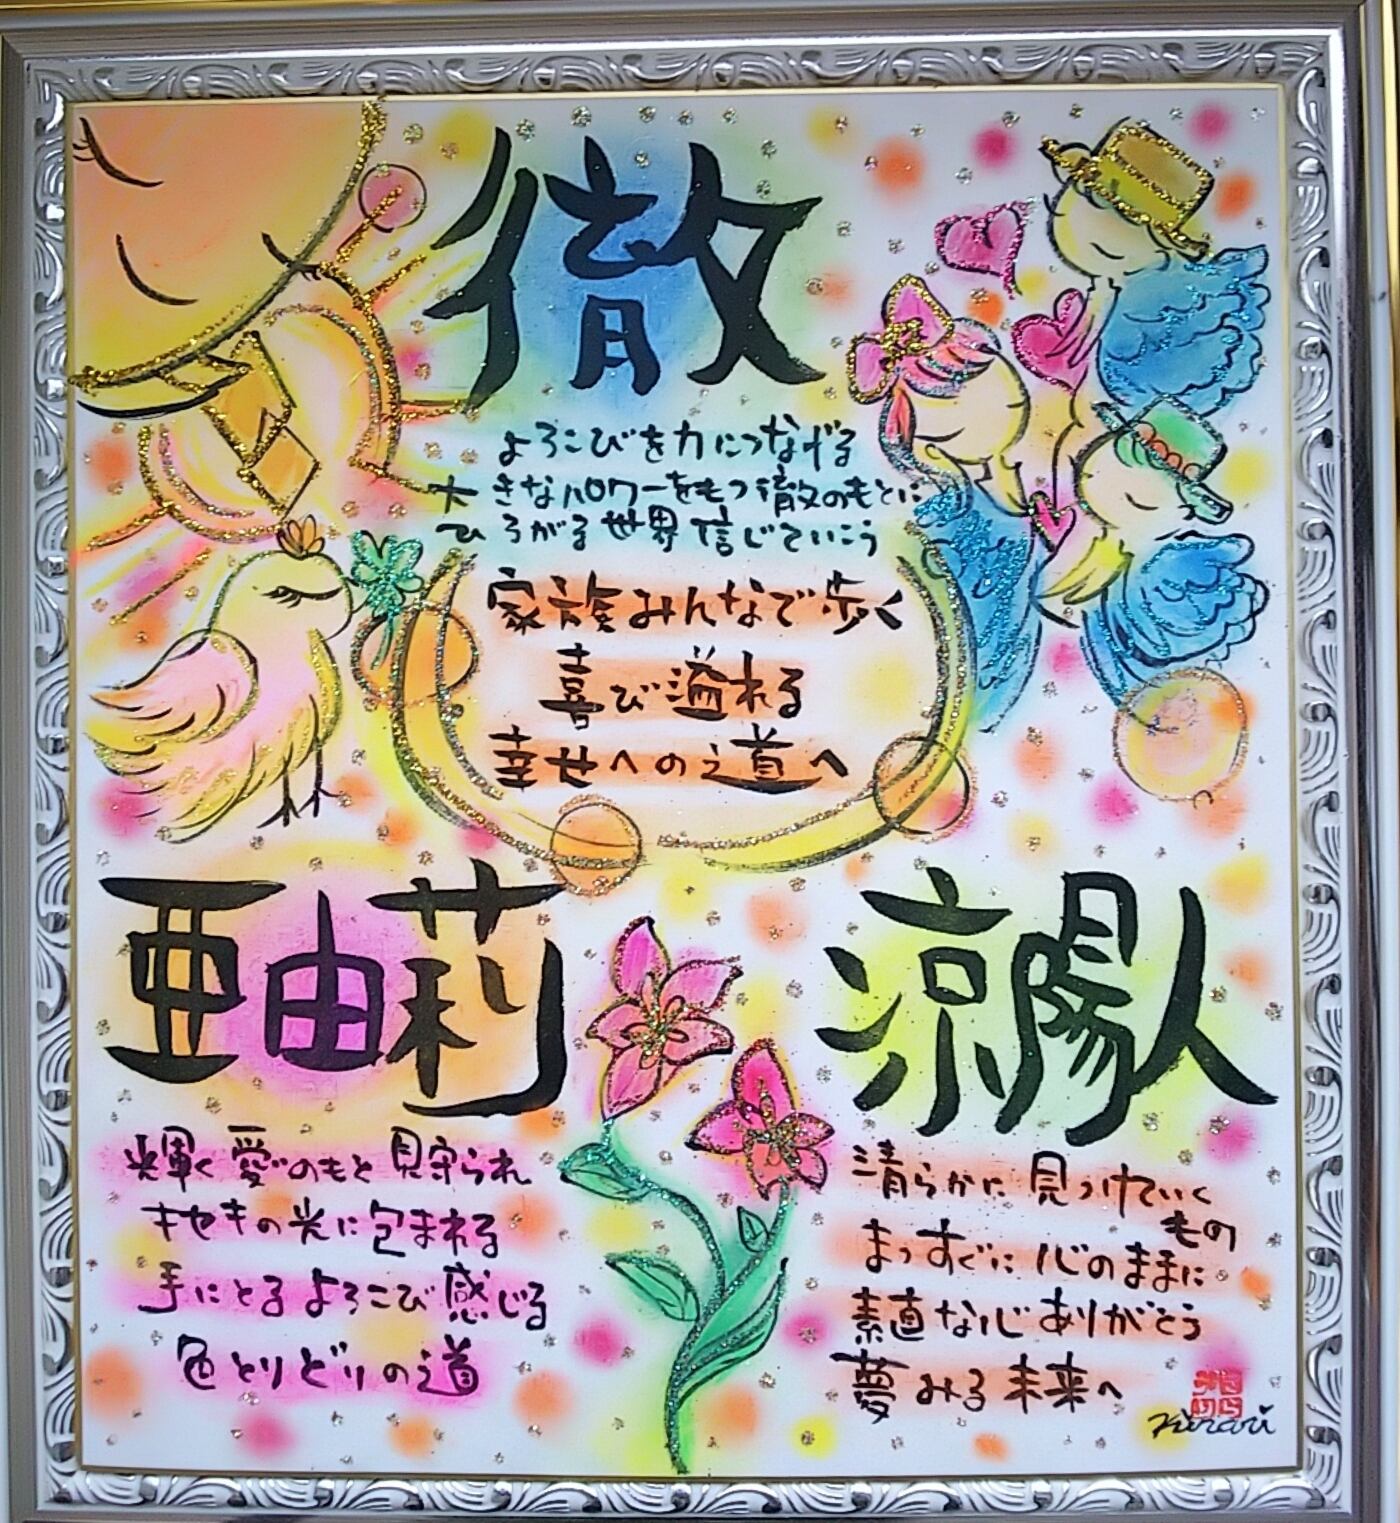 徹
よろこびを力につなげる
大きなパワーをもつ徹のもとに
ひろがる世界信じていこう
家族みんなで歩く
喜び溢れる
幸せへの道へ
亜由莉
輝く愛のもと見守られ
キセキの光に包まれる
手にとるよろこび感じる
色とりどりの道
涼陽人
清らかに見つけていくもの
まっすぐに心のままに
素直な心ありがとう
夢みる未来へ
Kirari